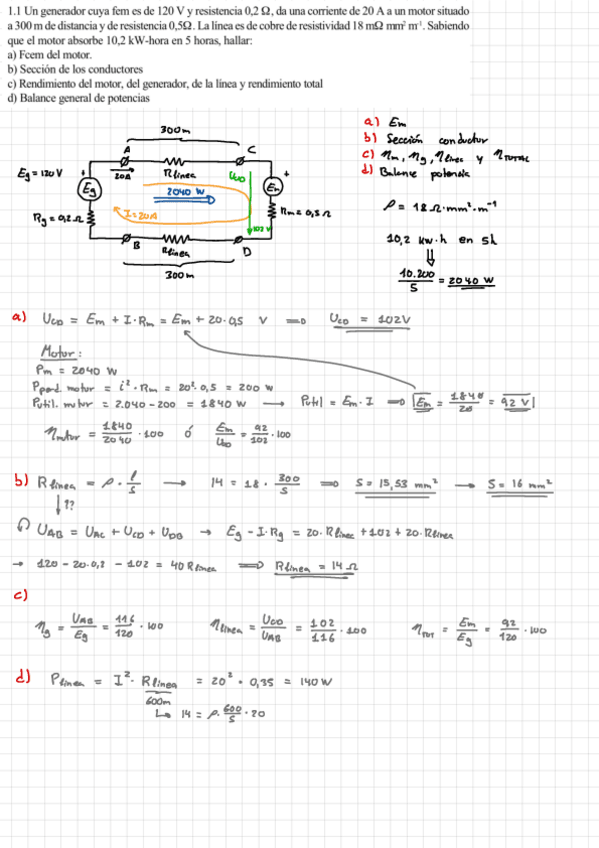 1.1 Un generador cuya fem es de 120 V y resistencia 0,2 Ω, da una corriente de 20 A a un motor situado
a 300 m de distancia y de resistencia 0,5Ω. La línea es de cobre de resistividad 18 mΩ mm² m⁻¹. Sabiendo
que el motor absorbe 10,2 kW-hora en 5 horas, hallar:
a) Fcem del motor.
b) Sección de los conductores
c) Rendimiento del motor, del generador, de la línea y rendimiento total
d) Balance general de potencias
300m
A
C
Eg = 120V
+
Eg
20A
Rlinea
UCD
+
Em
2040 W
I = 20A
Rg = 0,2 Ω
Rm = 0,5 Ω
102 V
B
Rlinea
D
300m
a) Em
b) Sección conductor
c) ηm, ηg, ηlinea y ηTOTAL
d) Balance potencia
ρ = 18 Ω·mm²·m⁻¹
10,2 kw·h en 5h
⇓
10.200/5 = 2040 W
a) UCD = Em + I·Rm = Em + 20·0,5 V ⇒ UCD = 102V
Motor:
Pm = 2040 W
Pperd. motor = i²·Rm = 20²·0,5 = 200 W
Putil. motor = 2.040 - 200 = 1840 W → Putil = Em·I ⇒ Em = 1840/20 = 92 V
ηmotor = 1840/2040 · 100 ó Em/UCD = 92/102 · 100
b) Rlinea = ρ · l/s → 14 = 18 · 300/S ⇒ S = 15,53 mm² → S = 16 mm²
↓??
UAB = UAC + UCD + UDB → Eg - I·Rg = 20·Rlinea + 102 + 20·Rlinea
→ 120 - 20·0,2 - 102 = 40 Rlinea ⇒ Rlinea = 14 Ω
c)
ηg = UAB/Eg = 116/120 · 100 ηlinea = UCD/UAB = 102/116 · 100 ηTOT = Em/Eg = 92/120 · 100
d) Plinea = I² · Rlinea = 20² · 0,35 = 140 W
600m
↳ 14 = ρ · 600/S · 20